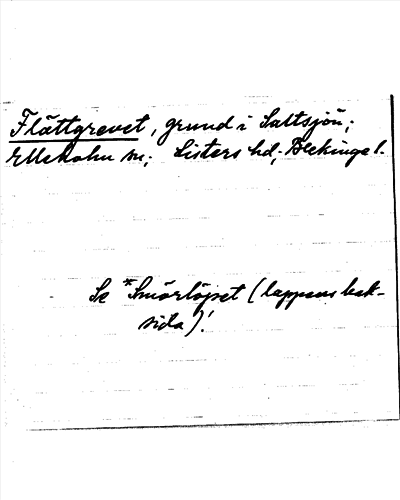 Flättgrevet, grund i Saltsjön;
Ellekolm sn; Listers hd; Blekinge l.
Se *Smörlöpet (lappens bak-
sida)!